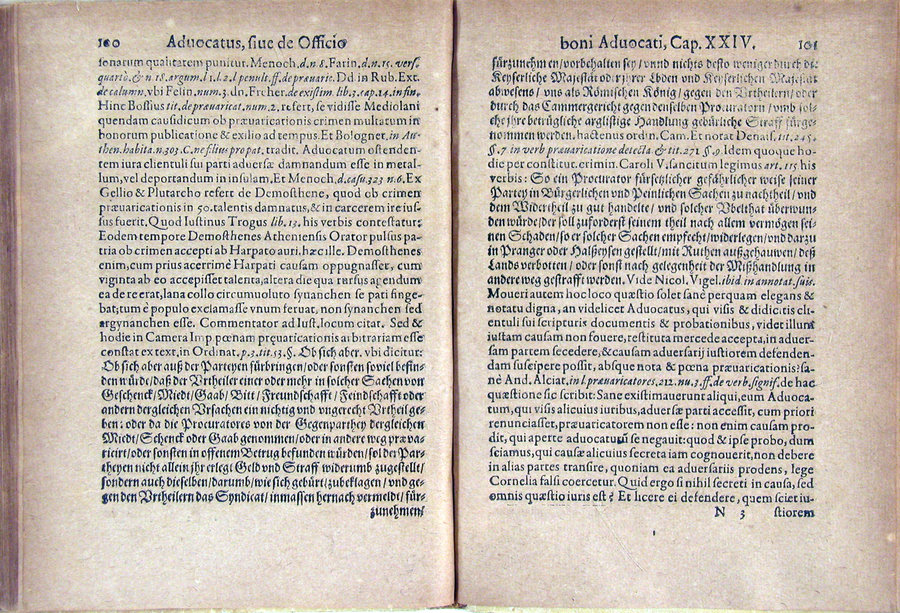 100 Aduocatus, siue de Officio
sonatum qualitatem punitur. Menoch. d. n. 8. Farin. d. n. 15. vers.
quartò. & n. 18. argum. l. 1. l. 2. l penult. ff. de præuaric. Dd in Rub. Ext.
de calumn. vbi Felin. num. 3. dn. Frcher. de existim. lib. 3. cap. 14. in fin.
Hinc Bossius tit. de præuaricat. num. 2. refert, se vidisse Mediolani
quendam causidicum ob præuaricationis crimen multatum in
bonorum publicatione & exilio ad tempus. Et Bolognet. in Au-
then. habita. n. 303. C. ne filius pro pat. tradit. Aduocatum ostenden-
tem iura clientuli sui parti aduersæ damnandum esse in metal-
lum, vel deportandum in insulam. Et Menoch. d. casu 323 n. 6. Ex
Gellio & Plutarcho refert de Demosthene, quod ob crimen
præuaricationis in 50. talentis damnatus, & in carcerem ire ius-
sus fuerit. Quod Iustinus Trogus lib. 13. his verbis contestatur:
Eodem tempore Demosthenes Atheniensis Orator pulsus pa-
tria ob crimen accepti ab Harpato auri. hæc ille. Demosthenes
enim, cum prius acerrimè Harpati causam oppugnasset, cum
viginta ab eo accepisset talenta, altera die qua rursus agendum
ea de re erat, lana collo circumuoluto synanchen se pati finge-
bat; tum è populo exclamasse vnum feruat, non synanchen sed
argynanchen esse. Commentator ad Iust. locum citat. Sed &
hodie in Camera Imp pœnam preuaricationis aibitrariam esse
constat ex text, in Ordinat. p. 3. tit. 53. §. Ob sich aber. vbi dicitur:
Ob sich aber auß der Parteyen fürbringen/ oder sonsten soviel befin-
den würde/ daß der Vrtheiler einer oder mehr in solcher Sachen von
Geschenck/ Miedt/ Gaab/ Bitt/ Freundschafft/ Feindschafft oder
andern dergleichen Vrsachen ein nichtig vnd ungerecht Vrtheil ge-
ben: oder da die Procuratores von der Gegenparthey dergleichen
Miedt/ Schenck oder Gaab genommen/ oder in andere weg præva-
ricirt/ oder sonsten in offenem Betrug befunden würden/ sol der Par-
theyen nicht allein jhr erlegt Geld vnd Straff widerumb zugestellt/
sondern auch dieselben/ darumb/ wie sich gebürt/ zubeklagen/ vnd ge-
gen den Vrtheilern das Syndicat/ inmassen hernach vermeldt/ für-
zunehmen/
boni Aduocati, Cap. XXIV. 101
fürzunehmen/ vorbehalten sey/ vnnd nichts desto weniger durch die
Keyserliche Majestät oder jrer Lbden vnd Keyserlichen Majestät
abwesens/ vns als Römischen König/ gegen den Vrtheilern/ oder
durch das Cammergericht gegen denselben Procuratorn/ vmb sol-
che jhre betrügliche arglistige Handlung gebürliche Straff fürge-
nommen werden. hactenus ordin. Cam. Et notat Denais. tit. 245.
§. 7. in verb præuaricatione detecta & tit. 271 §. 9. Idem quoque ho-
die per constitut. crimin. Caroli V. sancitum legimus art. 115 his
verbis: So ein Procurator fürsetzlicher gefährlicher weise seiner
Partey in Bürgerlichen vnd Peinlichen Sachen zu nachtheil/ vnd
dem Widertheil zu gut handelte/ vnd solcher Vbelthat überwun-
den würde/ der soll zuforderst seinem theil nach allem vermögen sei-
nen Schaden/ so er solcher Sachen empfecht/ widerlegen/ vnd darzu
in Pranger oder Halßeysen gestellt/ mit Ruthen außgehauwen/ deß
Lands verbotten/ oder sonst nach gelegenheit der Mißhandlung in
andere weg gestrafft werden. Vide Nicol. Vigel. ibid. in annotat. suis.
Moueri autem hoc loco quæstio solet sanè perquam elegans &
notatu digna, an videlicet Aduocatus, qui visis & didicitis cli-
entuli sui scripturis documentis & probationibus, videt illum
iustam causam non fouere, restituta mercede accepta, in aduer-
sam partem secedere, & causam aduersarij iustiorem defenden-
dam suscipere possit, absque nota & pœna præuaricationis? sa-
nè And. Alciat. in l. præuaricatores, 212. nu. 3. ff. de verb. signif. de hac
quæstione sic scribit: Sane existimauerunt aliqui, eum Aduoca-
tum, qui visis alicuius iuribus, aduersæ parti accessit, cum priori
renunciasset, præuaricatorem non esse: non enim causam pro-
dit, qui aperte aduocatum se negauit: quod & ipse probo, dum
sciamus, qui causæ alicuius secreta iam cognouerit, non debere
in alias partes transire, quoniam ea aduersariis prodens, lege
Cornelia falsi coercetur. Quid ergo si nihil secreti in causa, sed
omnis quæstio iuris est? Et licere ei defendere, quem sciet iu-
N 3 stiorem